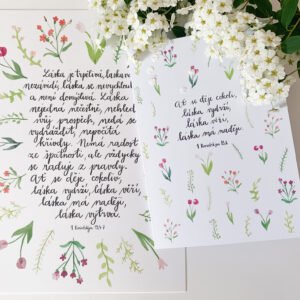 Láska je trpělivá, laskavá
nezávidí, láska se nevychloubá
a není domýšlivá. Láska
nejedná nečestně, nehledá
svůj prospěch, nedá se
vydráždit, nepočítá
křivdy. Nemá radost
ze špatnosti, ale vždycky
se raduje z pravdy.
Ať se děje cokoliv,
láska vydrží, láska věří,
láska má naději,
láska vytrvá.
1 Korintským 13:4-7
Ať se děje cokoliv,
láska vydrží,
láska věří,
láska má naději.
1 Korintským 13:6